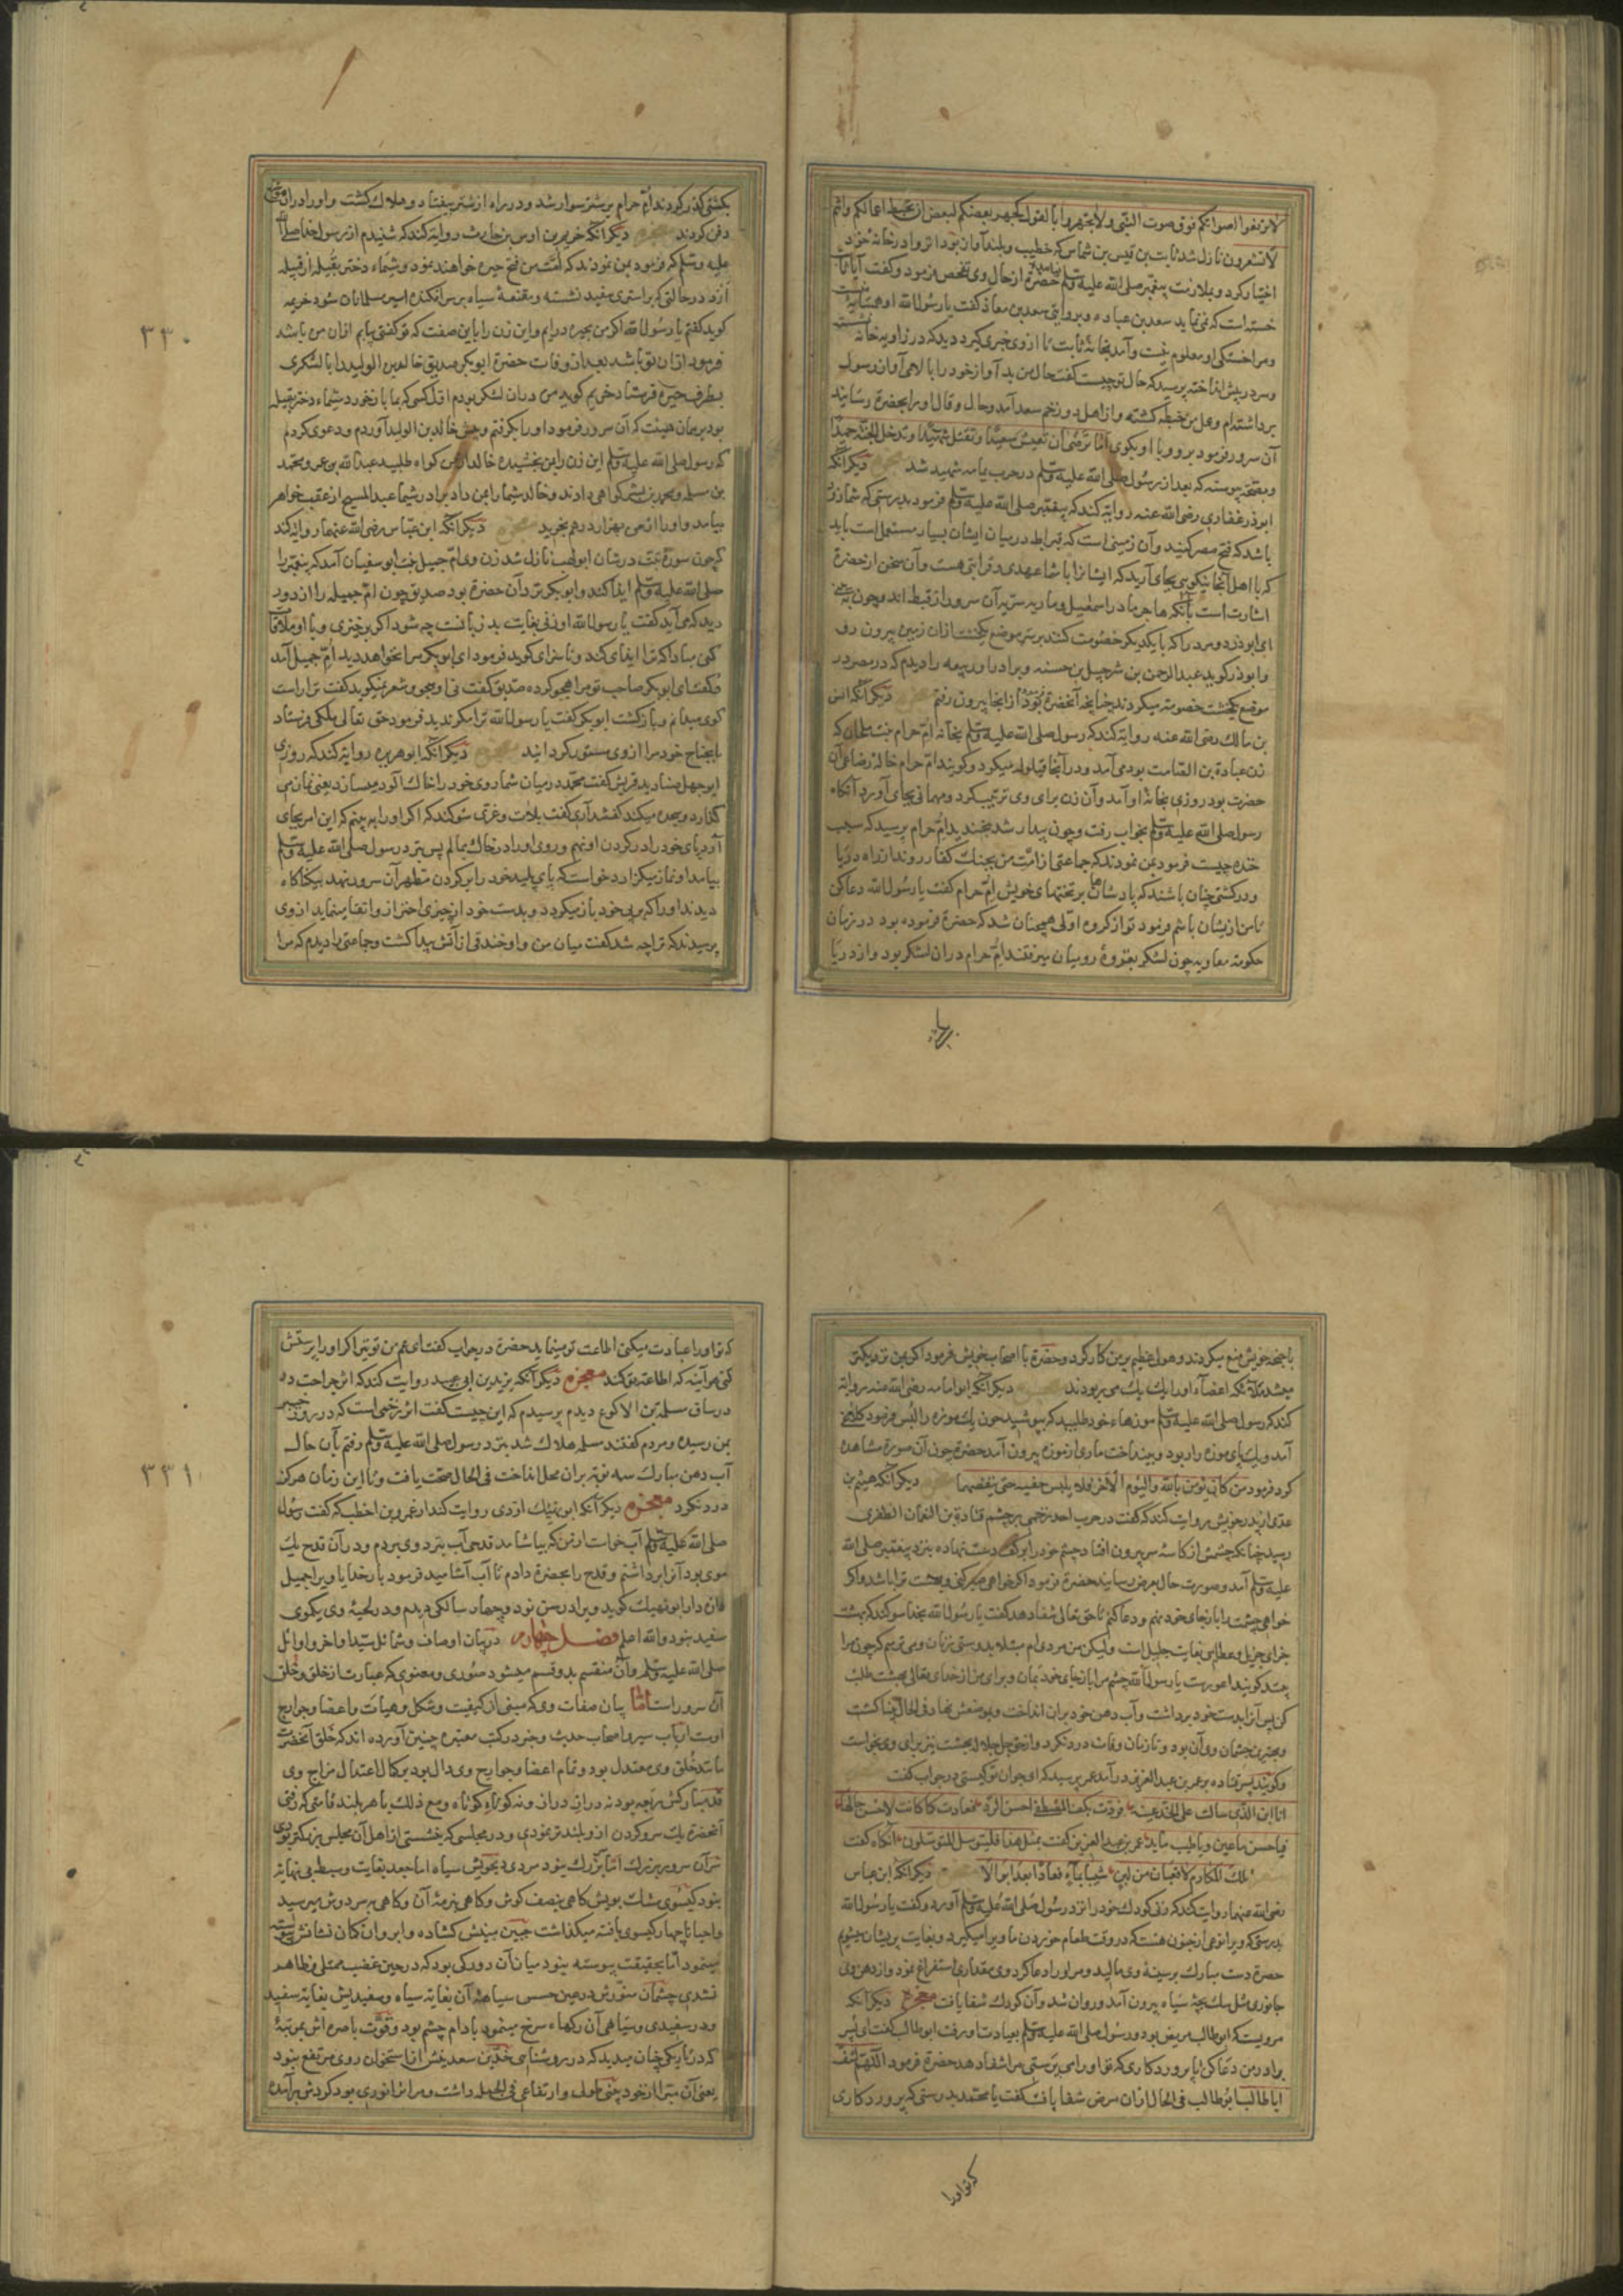 لا ترفعوا اصواتکم فوق صوت النبی ولا تجهروا بالقول کجهر بعضکم لبعض ان تحبط اعمالکم وانتم
لا تشعرون نازل شد ثابت بن قیس بن شماس که خطیب و بلند آواز بود انزوا در خانهٔ خود
اختیار کرد و بملازمت پیغمبر صلی الله علیه وسلم حضرة از حال وی تفحص فرمود و کفت آیا ثابت
خسته است که نمی نماید سعد بن عباده و بروایتی سعد بن معاذ کفت یا رسول الله او همسایهٔ منست
و مرا خستکی او معلوم نیست و آمد بخانهٔ ثابت تا از وی خبری کیرد دید که در زاویه خانه نشسته
و سر در پیش انداخته پرسید که حال تو چیست کفت حال من بد آواز خود را بالای آواز رسول
برداشته ام و عمل من حبطه کشته و از اهل دوزخم سعد آمد و حال و قال او را بحضرة رسانید
آن سرور فرمود برو و با او بکوی اما ترضی ان تعیش سعیدا و تقتل شهیدا و تدخل الجنة حمیدا
و بصحت پیوسته که بعد از رسول صلی الله علیه وسلم در حرب یمامه شهید شد دیکر آنکه
ابوذر غفاری رضی الله عنه روایة کند که پیغمبر صلی الله علیه وسلم فرمود بدرستی که شما زود
باشد که فتح مصر کنید و آن زمینی است که قیراط در میان ایشان بسیار مستعمل است باید
که با اهل آنجا نیکویی بجای آرید که ایشانرا با شما عهدی و قرابتی هست و آن سخن از حضرة
اشارت است بآنکه هاجر مادر اسمعیل و ماریه سریه آن سرور از قبط اند و چون
ای ابوذر دو مرد را که با یکدیکر خصومت کنند بر سر موضع یکخشت از آن زمین بیرون رو
و ابوذر کوید عبدالرحمن بن شرحبیل بن حسنه و برادر او ربیعه را دیدم که در مصر در
موضع یکخشت خصومة میکردند چنانچه آنحضرة فرمود از آنجا بیرون رفتم دیکر آنکه انس
بن مالک رضی الله عنه روایة کند که رسول صلی الله علیه وسلم بخانه ام حرام بنت ملحان که
زن عبادة بن الصامت بود می آمد و در آنجا قیلوله میکرد و کویند ام حرام خالهٔ رضاعی آن
حضرت بود روزی بخانهٔ او آمد و آن زن برای وی ترتیب کرد و مهمانی بجای آورد آنکاه
رسول صلی الله علیه وسلم بخواب رفت و چون بیدار شد بخندید ام حرام پرسید که سبب
خنده چیست فرمود بمن نمودند که جماعتی از امت من بجنک کفار روند از راه دریا
و در کشتی چنان باشند که پادشاهان بر تختهای خویش ام حرام کفت یا رسول الله دعا کن
تا من از ایشان باشم فرمود تو از کروه اولی همچنان شد که حضرة فرموده بود در زمان
حکومة معاویه چون لشکر بغزوهٔ رومیان میرفتند ام حرام در آن لشکر بود و از دریا
بکشتی کذر کردند ام حرام بر شتر سوار شد و در راه از شتر بیفتاد و هلاک کشت و او را در آن موضع
دفن کردند دیکر آنکه خریم بن اوس بن حارث روایة کند که شنیدم از رسول خدا صلی الله
علیه وسلم که فرمود بمن نمودند که امت من فتح حیره خواهند نمود و شیماء دختر بقیله از قبیله
ازد در حالتی که بر استری سفید نشسته و مقنعهٔ سیاه بر سر افکنده اسیر مسلمانان شود خریم
کوید کفتم یا رسول الله اکر من بحیره درایم و این زن را باین صفت که تو کفتی یابم از آن من باشد
فرمود از آن تو باشد بعد از وفات حضرة ابوبکر صدیق خالد بن الولید را با لشکری
بطرف حیره فرستاد خریم کوید من در آن لشکر بودم اول کسی که بما باز خورد شیماء دختر بقیله
بود بر همان هیئت که آن سرور فرمود او را بکرفتم و پیش خالد بن الولید آوردم و دعوی کردم
که رسول صلی الله علیه وسلم این زن را بمن بخشیده خالد از من کواه طلبید عبدالله بن عمر و محمد
بن مسلمه و محمد بن بشیر کواهی دادند و خالد شیما را بمن داد برادر شیما عبدالمسیح از عقب خواهر
بیامد و او را از من بهزار درهم بخرید دیکر آنکه ابن عباس رضی الله عنهما روایة کند
که چون سورة تبت در شان ابولهب نازل شد زن وی ام جمیل بنت ابوسفیان آمد که پیغمبر را
صلی الله علیه وسلم ایذا کند و ابوبکر نزد آن حضرة بود صدیق چون ام جمیله را از دور
دید که می آید کفت یا رسول الله او زنی بغایت بد زبانست چه شود اکر برخیزی و با او ملاقات
کنی مبادا که ترا ایذای کند و ناسزای کوید فرمود ای ابوبکر مرا نخواهد دید ام جمیل آمد
و کفت ای ابوبکر صاحب تو مرا هجو کرده صدیق کفت نی او هجو و شعر نمیکوید کفت ترا راست
کوی میدانم و باز کشت ابوبکر کفت یا رسول الله ترا مکر ندید فرمود حق تعالی ملکی فرستاد
تا بجناح خود مرا از وی مستور کردانید دیکر آنکه ابوهریره روایة کند که روزی
ابوجهل صنادید قریش کفت محمد در میان شما روی خود را خاک آلود میسازد یعنی نماز می
کذارد و سجده میکند کفتند آری کفت بلات و عزی سوکند که اکر او را به بینم که این امر بجای
آورد پای خود را در کردن او نهم و روی او را در خاک بمالم پس نزد رسول صلی الله علیه وسلم
بیامد او نماز میکزارد خواست که پای پلید خود را بر کردن مطهر آن سرور نهد بیکناکاه
دیدند او را که بر پی خود باز میکردد و بدست خود از چیزی احتراز و اتقا مینماید از وی
پرسیدند که ترا چه شد کفت میان من و او خندقی از آتش پیدا کشت و جماعتی را دیدم که مرا
۳۳۰
با جنحهٔ خویش منع میکردند و هول عظیم بر من کار کرد و حضرة با اصحاب خویش فرمود اکر بمن نزدیکتر
میشد ملائکه اعضاء او را یک یک می ربودند دیکر آنکه ابو امامه رضی الله عنه روایة
کند که رسول صلی الله علیه وسلم موزهاء خود طلبید که بپوشید چون یک موزه را لبس فرمود کلاغی
آمد و یک پای موزه را ربود و بینداخت ماری از موزه بیرون آمد حضرة چون آن صورة مشاهده
کرد فرمود من کان یؤمن بالله والیوم الآخر فلا یلبس خفیه حتی ینفضهما دیکر آنکه هیثم بن
عدی از پدر خویش روایت کند که کفت در حرب احد زخمی بر چشم قتادة بن النعمان الظفری
رسید چنانکه چشمش از کاسهٔ سر بیرون افتاد چشم خود را بر کف دست نهاده بنزد پیغمبر صلی الله
علیه وسلم آمد و صورت حال بعرض رسانید حضرة فرمود اکر خواهی صبر کنی و بهشت ترا باشد و اکر
خواهی چشمت را باز بجای خود نهم و دعا کنم تا حق تعالی شفا دهد کفت یا رسول الله بخدا سوکند که بهشت
جزای جزیل و عطای بغایت جلیل است ولیکن من مردی ام مبتلا بدوستی زنان و می ترسم که چون مرا
بینند کویند اعورست یا رسول الله چشم مرا باز بجای خود بمان و برای من از خدای تعالی بهشت طلب
کن پس آنرا بدست خود برداشت و آب دهن خود بر آن انداخت و بموضعش نهاد فی الحال بینا کشت
و بهترین چشمان وی آن بود و تا زمان وفات درد نکرد و از حق جل جلاله بهشت نیز برای وی بخواست
و کویند پسر قتاده بر عمر بن عبدالعزیز در آمد عمر پرسید که ای جوان تو کیستی در جواب کفت
انا ابن الذی سالت علی الخد عینه فردت بکف المصطفی احسن الرد فعادت کما کانت لاحسن حالها
فیا حسن ما عین و یا طیب ما ید عمر بن عبدالعزیز کفت بمثل هذا فلیتوسل المتوسلون آنکاه کفت
تلک المکارم لا قعبان من لبن شیبا بماء فعادا بعد ابوالا دیکر آنکه ابن عباس
رضی الله عنهما روایت کند که زنی کودک خود را نزد رسول صلی الله علیه وسلم آورد و کفت یا رسول الله
بدرستی که ویرا نوعی از جنون هست که در وقت طعام خوردن ما ویرا میکیرد و بغایت پریشان میشویم
حضرة دست مبارک بر سینهٔ وی مالید و مر او را دعا کرد وی مقداری استفراغ نمود و از دهن وی
جانوری مثل سک بچهٔ سیاه بیرون آمد و روان شد و آن کودک شفا یافت معجزه دیکر آنکه
مرویست که ابوطالب مریض بود و رسول صلی الله علیه وسلم بعیادت او رفت ابوطالب کفت ای پسر
برادر من دعا کن تا پروردکاری که تو او را می پرستی مرا شفا دهد حضرة فرمود اللهم اشف
اباطالب ابوطالب فی الحال از آن مرض شفا یافت کفت یا محمد بدرستی که پروردکاری
که تو او را
که تو او را عبادت میکنی اطاعت تو مینماید حضرة در جواب کفت ای عم من تو نیز اکر او را پرستش
کنی هر آینه که اطاعة تو کند معجزه دیکر آنکه یزید بن ابی عبید روایت کند که اثر جراحت در
در ساق سلمه بن الاکوع دیدم پرسیدم که این چیست کفت اثر زخمی است که در روز خیبر
بمن رسیده و مردم کفتند سلمه هلاک شد بنزد رسول صلی الله علیه وسلم رفتم بآن حال
آب دهن مبارک سه نوبة بر آن محل انداخت فی الحال صحت یافت و تا این زمان هرکز
درد نکرد معجزه دیکر آنکه ابونهیک ازدی روایت کند از عمرو بن اخطب که کفت رسول
صلی الله علیه وسلم آب خواست از من که بیاشامد قدحی آب بنزد وی بردم و در آن قدح یک
موی بود آنرا برداشتم و قدح را بحضرة دادم تا آب آشامید فرمود بار خدایا ویرا جمیل
کردان ابونهیک کوید ویرا در سن نود و چهار سالکی دیدم و در لحیهٔ وی یکموی
سفید نبود والله اعلم فصل چهارم در بیان اوصاف و شمائل سید اواخر و اوائل
صلی الله علیه وسلم و آن منقسم بدو قسم میشود صوری و معنوی که عبارت از خلق و خلق
آن سرور است اما بیان صفات وی که مبنی از کیفیت و شکل و هیات و اعضا و جوارح
اوست ارباب سیر و اصحاب حدیث و خبر در کتب معتبره چنین آورده اند که خلق آنحضرت
مانند خلق وی معتدل بود و تمام اعضا و جوارح وی دال بود بر کمال اعتدال مزاج وی
قد مبارکش مربعه بود نه دراز دراز و نه کوتاه کوتاه و مع ذلک با هر بلند قامتی که رفتی
آنحضرة یک سر و کردن از و بلندتر نمودی و در مجلسی که نشستی از اهل آن مجلس بزرکتر بودی
سر آن سرور بزرک اما بزرک نبود
بنود کیسوی مشک بویش کاهی بنصف کوش و کاهی بنرمهٔ آن و کاهی بر سر دوش میرسید
و احیانا چهار کیسوی بافته میکذاشت جبین مبینش کشاده و ابروان کمان نشانش پیوسته
مینمود اما بحقیقت پیوسته نبود میان آن دو رکی بود که در حین غضب ممتلی و ظاهر
شدی چشمان منورش در عین حسن سیاهیٔ آن بغایة سیاه و سفیدیش بغایة سفید
و در سفیدی و سیاهی آن رکهاء سرخ مینمود بادام چشم بود و قوت باصره اش بمرتبهٔ
که در تاریکی چنان میدید که در روشنایی خدین سعدیش از استخوان روی مرتفع نبود
بینی آن مبرا از خودبینی طولی و ارتفاعی فی الجمله داشت و مر انرا نوری بود کردش بر آمده
۳۳۱